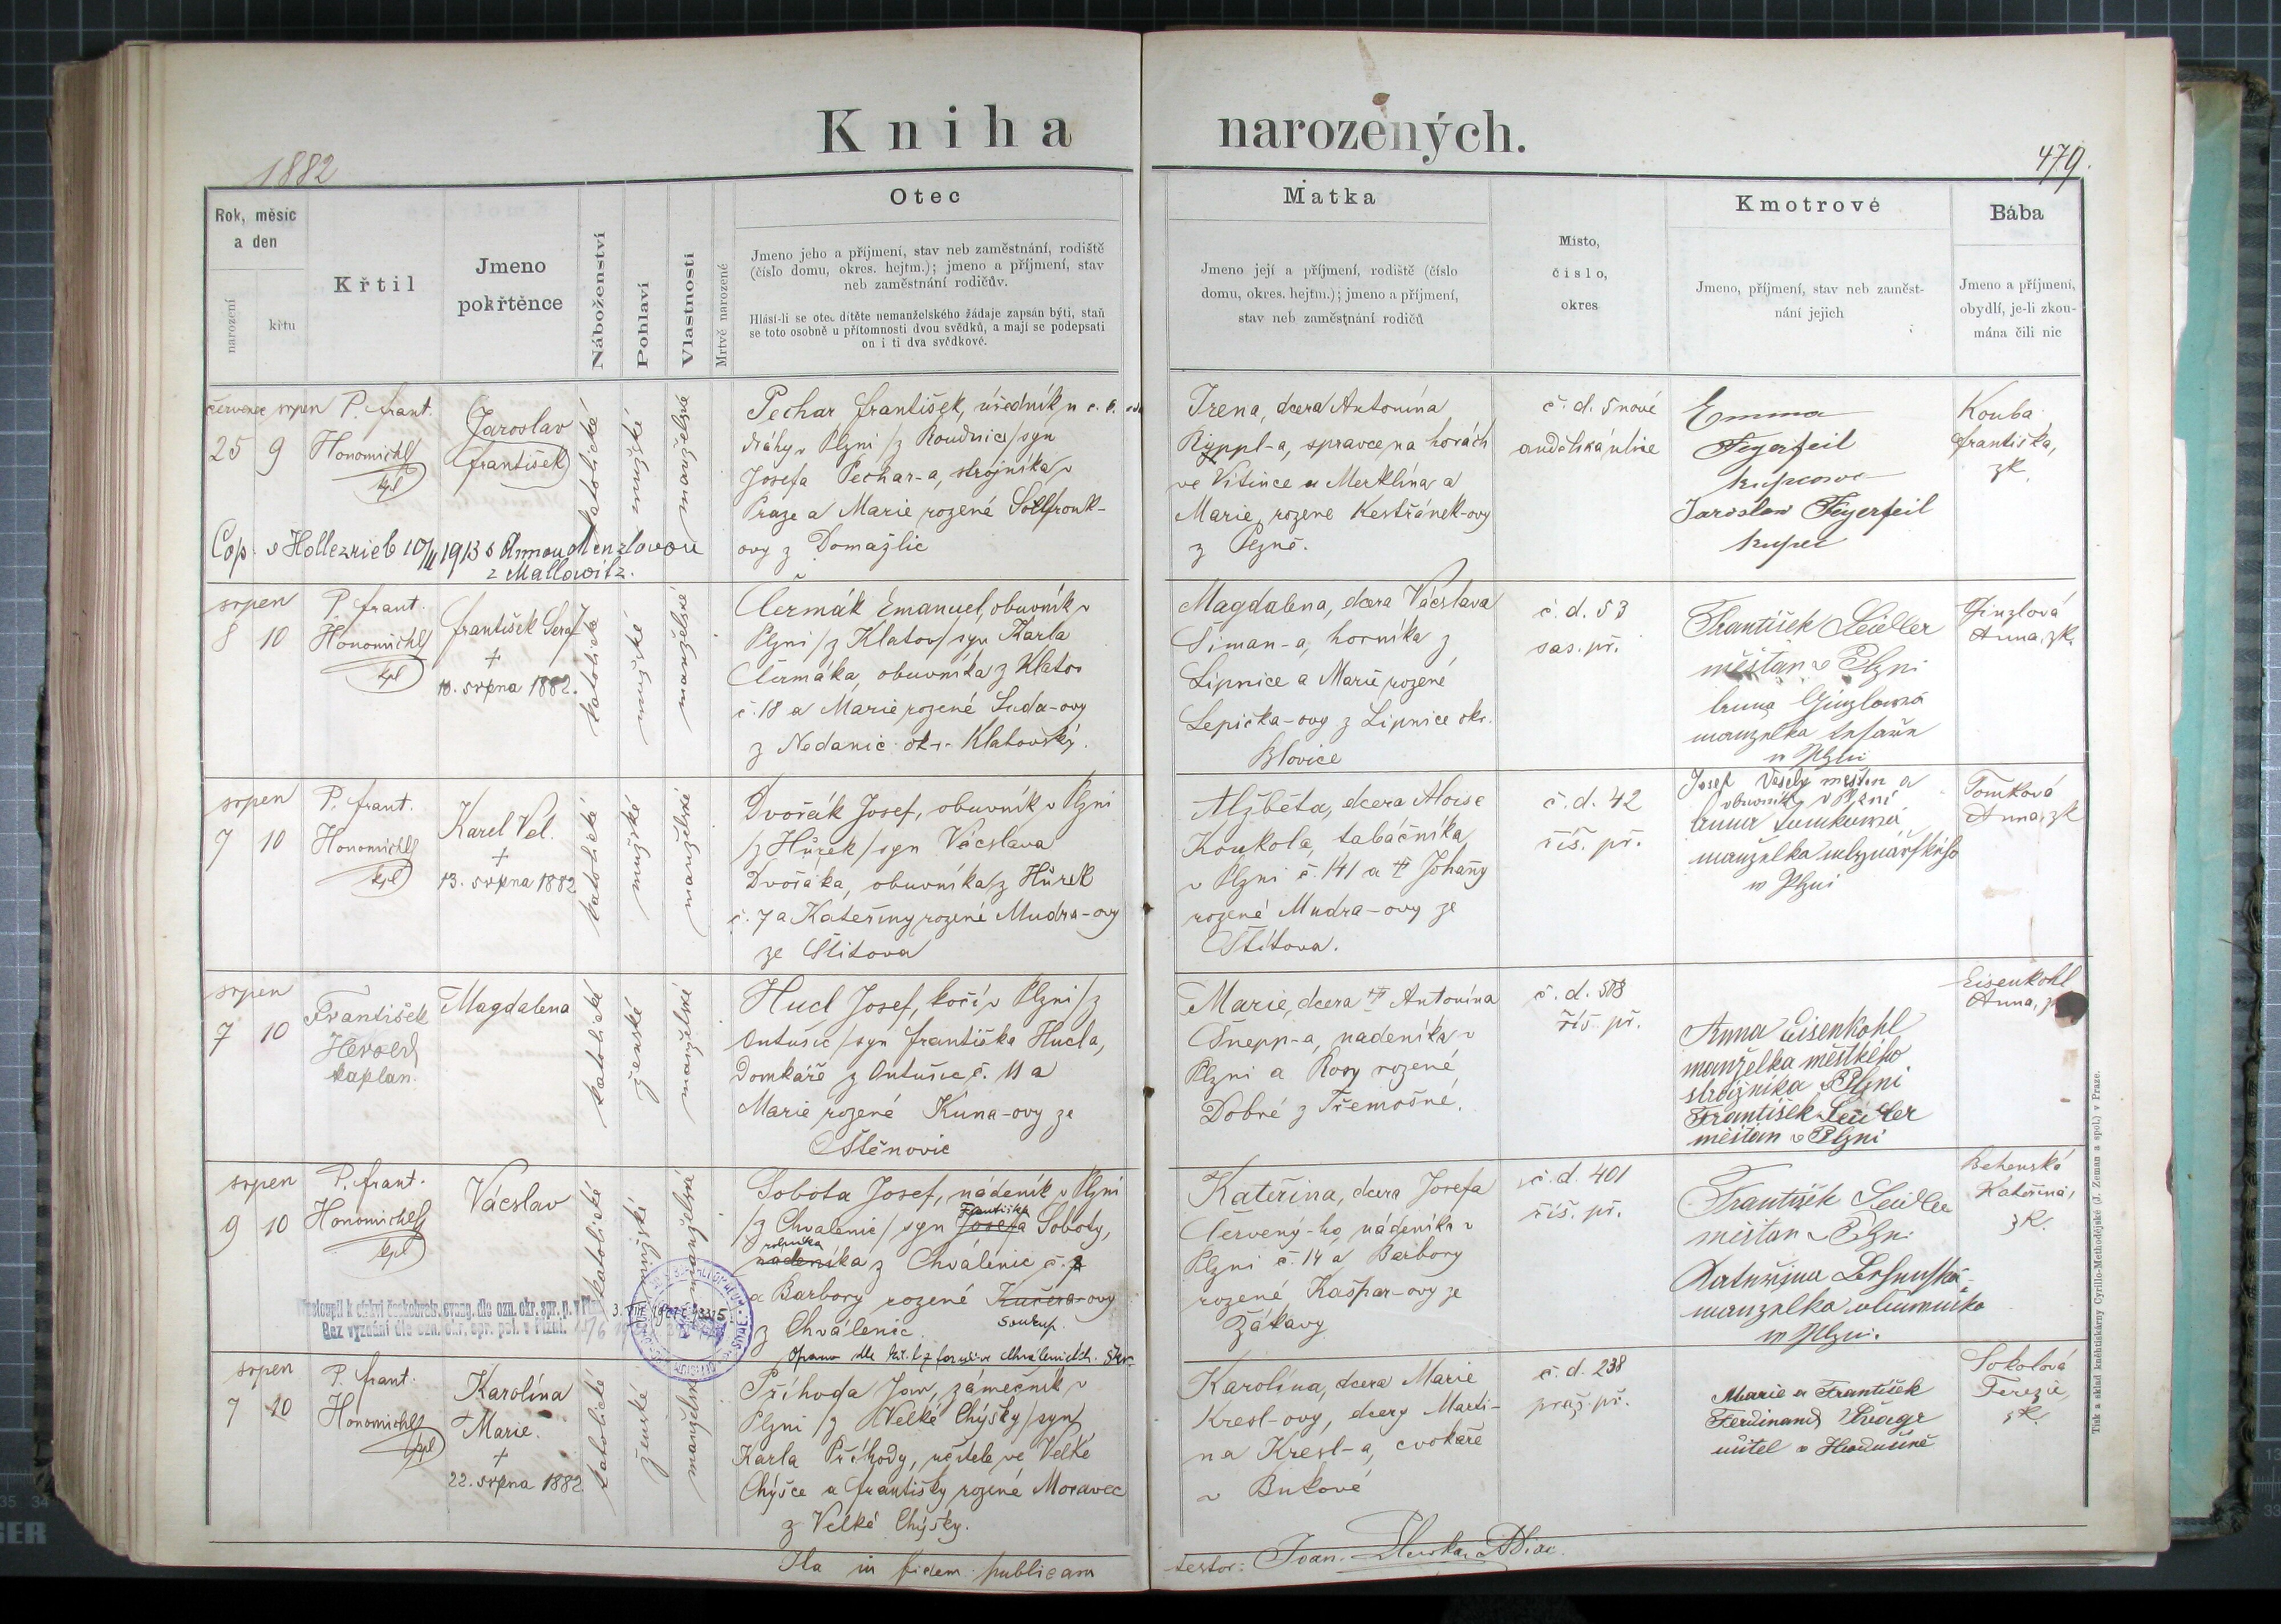 Kniha narozených.
1882
479.
Rok, měsíc
a den
narození
křtu
Křtil
Jmeno
pokřtěnce
Náboženství
Pohlaví
Vlastnosti
Mrtvě narozené
Otec
Jmeno jeho a příjmení, stav neb zaměstnání, rodiště
(číslo domu, okres. hejtm.); jmeno a příjmení, stav
neb zaměstnání rodičův.
Hlásí-li se otec dítěte nemanželského žádaje zapsán býti, staň
se toto osobně u přítomnosti dvou svědků, a mají se podepsati
on i ti dva svědkové.
Matka
Jmeno její a příjmení, rodiště (číslo
domu, okres. hejtm.); jmeno a příjmení,
stav neb zaměstnání rodičů
Místo,
číslo,
okres
Kmotrové
Jmeno, příjmení, stav neb zaměst-
nání jejich
Bába
Jmeno a příjmení,
obydlí, je-li zkou-
mána čili nic
červenec srpen
25 9
P. Frant.
Honomichl
kpl
Jaroslav
František
katolické
mužské
manželské
Pechar František, úředník u c. k.
dráhy v Plzni /z Roudnice/ syn
Josefa Pechar-a, strojníka v
Praze a Marie rozené
ovy z Domažlic
Cop. v Hollezrieb 10/II 1913 s Annou Menzlovou
z Mallowitz.
Irena, dcera Antonína
Ryppl-a, správce na horách
ve Vitince u Merklína a
Marie, rozené Kestřánek-ovy
z Plzně.
č. d. 5 nové
andělská ulice
Emma
Fegerfeil
kupcová
Jaroslav Fegerfeil
kupec
Kouba
Františka,
zk.
srpen
8 10
P. Frant.
Honomichl
kpl
František Seraf.
+
10. srpna 1882.
katolické
mužské
manželské
Čermák Emanuel, obuvník v
Plzni /z Klatov/ syn Karla
Čermáka, obuvníka z Klatov
č. 18 a Marie rozené Suda-ovy
z Nedanic okr. Klatovský.
Magdalena, dcera Vácslava
Šiman-a, horníka z
Lipnice a Marie rozené
Lepička-ovy z Lipnice okr.
Blovice
č. d. 53
sas. př.
František Seidler
měštan v Plzni
Anna Ginzlowa
manzelka tesaře
w Plzni
Ginzlová
Anna, zk.
srpen
7 10
P. Frant.
Honomichl
kpl
Karel Vel.
+
13. srpna 1882
katolické
mužské
manželské
Dvořák Josef, obuvník v Plzni
/z Hůrek/ syn Vácslava
Dvořáka, obuvníka z Hůrek
č. 7 a Kateřiny rozené Mudra-ovy
ze Štítova
Alžběta, dcera Aloise
Koukola, tabáčníka
v Plzni č. 141 a # Johany
rozené Mudra-ovy ze
Štítova.
č. d. 42
říš. př.
Josef Veselý mešťan a
obuvník v Plzni
Anna Tomkowa
manželka mlynářského
w Plzni
Tomková
Anna, zk
srpen
7 10
František
Herold
kaplan.
Magdalena
katolické
ženské
manželské
Hucl Josef, kočí v Plzni /z
Antušic/ syn Františka Hucla,
Domkáře z Antušic č. 11 a
Marie rozené Kúna-ovy ze
Štěnovic
Marie, dcera # Antonína
Šnepp-a, nádeníka v
Plzni a Rosy rozené
Dobré z Třemošné.
č. d. 508
říš. př.
Anna Eisenkohl
manželka městkého
strážníka v Plzni
František Seidler
měštan v Plzni
Eisenkohl
Anna, zk
srpen
9 10
P. Frant.
Honomichl
kpl
Vácslav
katolické
mužské
manželské
Sobota Josef, nádeník v Plzni
Františka
/z Chválenic/ syn Josefa Soboty,
rolníka
nádeníka z Chválenic č. 2
a Barbory rozené Kučera-ovy
Soukup.
z Chválenic.
Kateřina, dcera Josefa
Červený-ho, nádeníka v
Plzni č. 14 a Barbory
rozené Kašpar-ovy ze
Žákavy
č. d. 401
říš. př.
František Seidler
měštan v Plzni
Kateřina
manzelka obuvnika
w Plzni.
Kateřina,
zk.
srpen
7 10
P. Frant.
Honomichl
kpl
Karolína
Marie.
+
22. srpna 1882
katolické
ženské
manželské
Příhoda Jan, zámečník v
Plzni /z Velké Chýšky/ syn
Karla Příhody, učitele ve Velké
Chýšce a Františky rozené Moravec
z Velké Chýšky.
Karolína, dcera Marie
Kresl-ovy, dcery Marti-
na Kresl-a, cvokaře
v Bukové
č. d. 238
praž. př.
Marie a František
Ferdinand
učitel v
Sokolová
Terezie,
zk.
Ita in fidem publicam
testor: Joan.
Tisk a sklad kněhtiskárny Cyrillo-Methodějské (J. Zeman a spol.) v Praze.